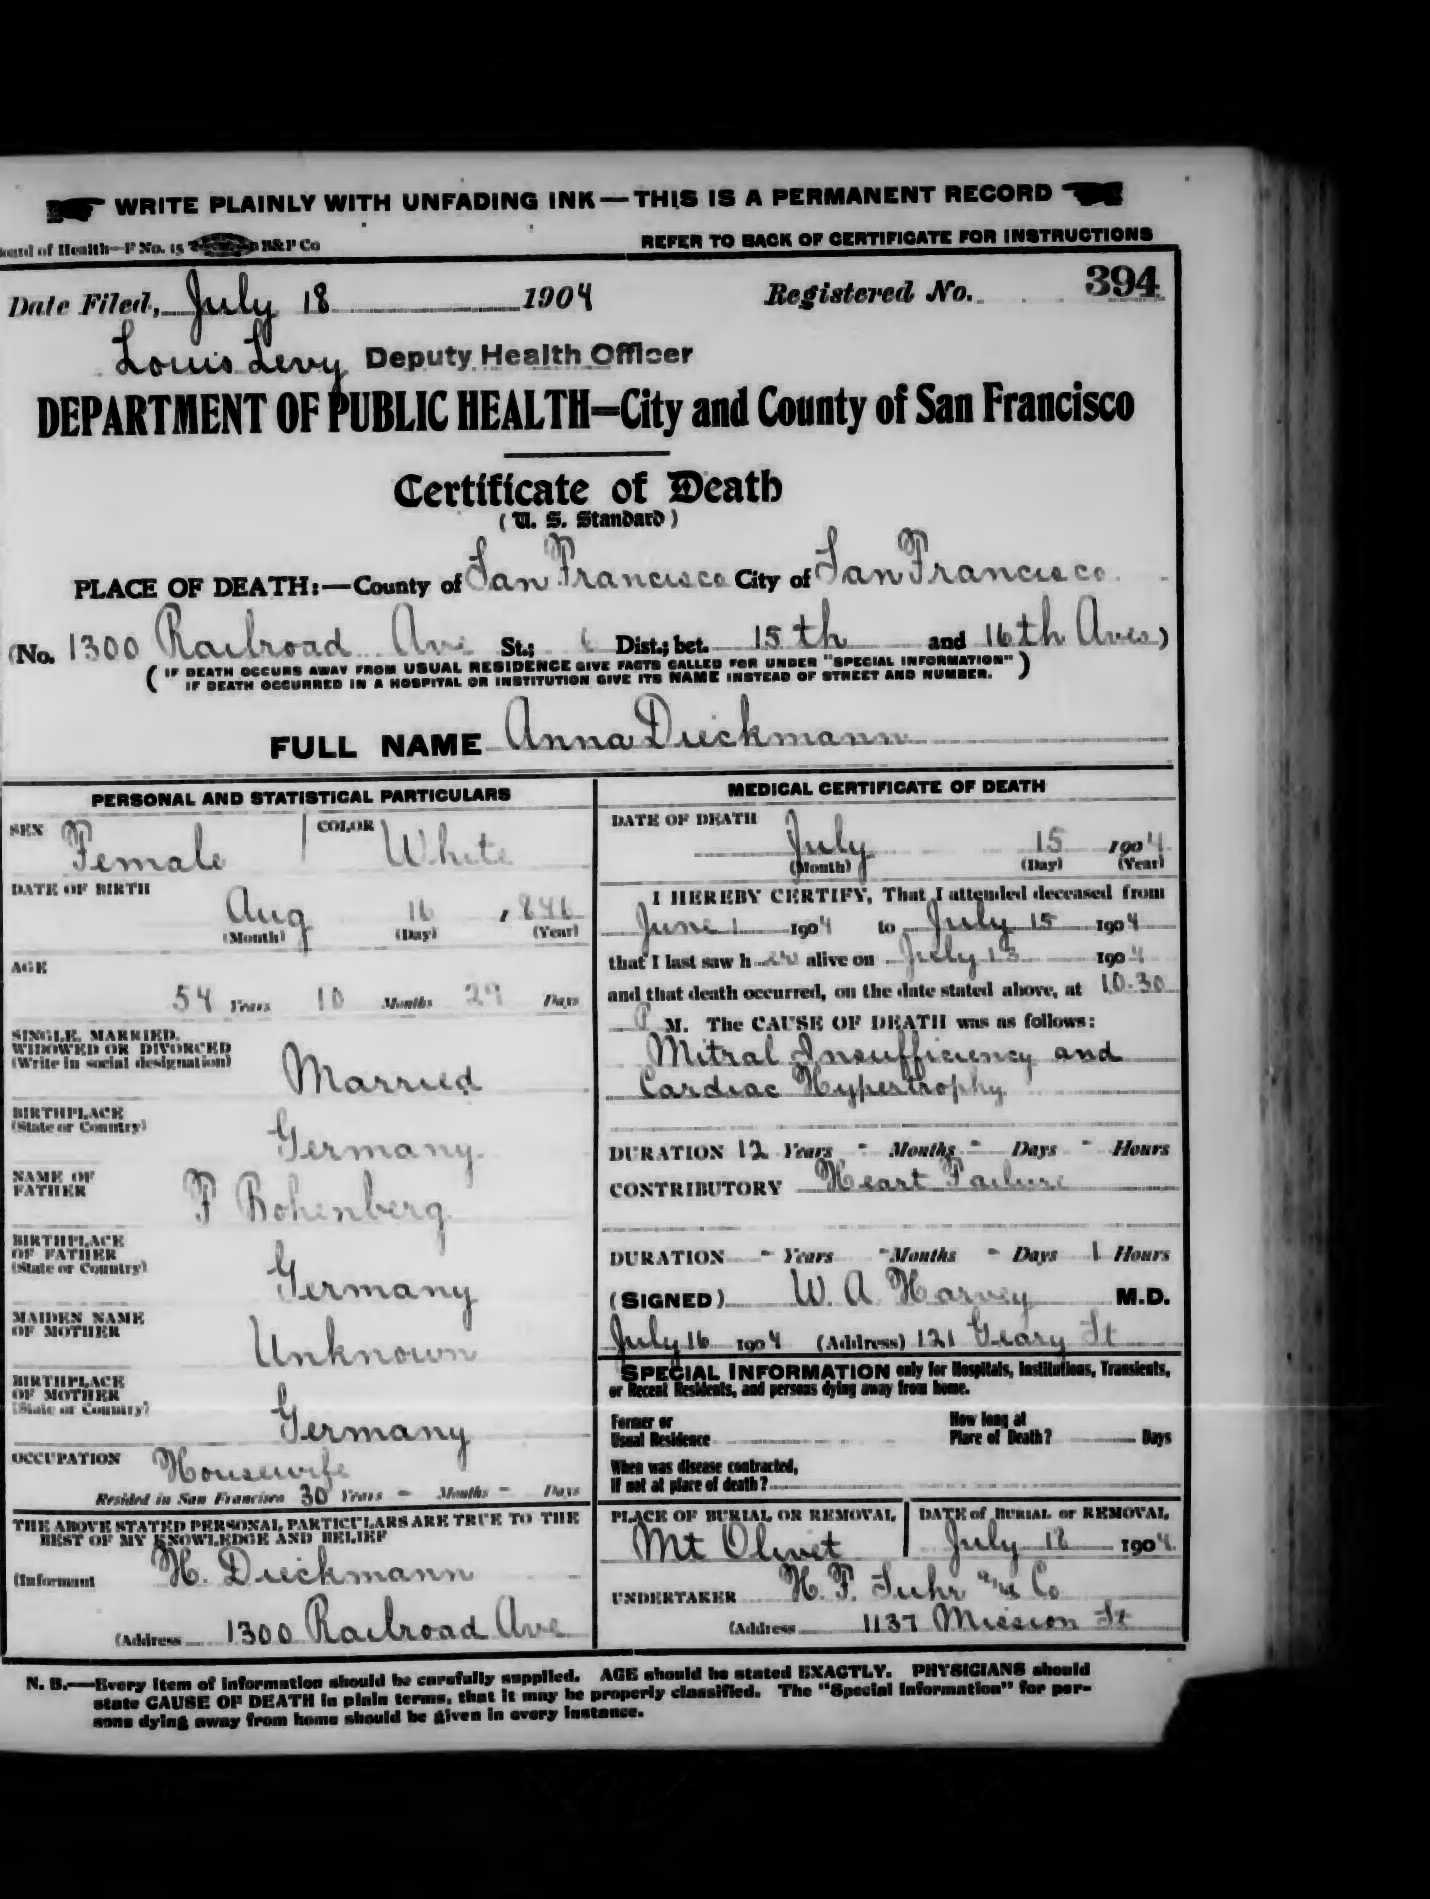 WRITE PLAINLY WITH UNFADING INK—THIS IS A PERMANENT RECORD
Board of Health—F No. 15 B&P Co
REFER TO BACK OF CERTIFICATE FOR INSTRUCTIONS
Date Filed, July 18 1904 Registered No. 394
Louis Levy Deputy Health Officer
DEPARTMENT OF PUBLIC HEALTH—City and County of San Francisco
Certificate of Death
(U. S. Standard)
PLACE OF DEATH:—County of San Francisco City of San Francisco
(No. 1300 Railroad Ave St.; 6 Dist.; bet. 15th and 16th Aves)
(IF DEATH OCCURS AWAY FROM USUAL RESIDENCE GIVE FACTS CALLED FOR UNDER "SPECIAL INFORMATION"
IF DEATH OCCURRED IN A HOSPITAL OR INSTITUTION GIVE ITS NAME INSTEAD OF STREET AND NUMBER.)
FULL NAME Anna Dieckmann
PERSONAL AND STATISTICAL PARTICULARS
SEX Female COLOR White
DATE OF BIRTH
Aug 16, 846
(Month) (Day) (Year)
AGE
54 Years 10 Months 29 Days
SINGLE, MARRIED,
WIDOWED OR DIVORCED
(Write in social designation)
Married
BIRTHPLACE
(State or Country)
Germany
NAME OF
FATHER
F Bohenberg
BIRTHPLACE
OF FATHER
(State or Country)
Germany
MAIDEN NAME
OF MOTHER
Unknown
BIRTHPLACE
OF MOTHER
(State or Country)
Germany
OCCUPATION Housewife
Resided in San Francisco 30 Years - Months - Days
THE ABOVE STATED PERSONAL PARTICULARS ARE TRUE TO THE
BEST OF MY KNOWLEDGE AND BELIEF
(Informant H. Dieckmann
(Address 1300 Railroad Ave
MEDICAL CERTIFICATE OF DEATH
DATE OF DEATH
July 15 1904
(Month) (Day) (Year)
I HEREBY CERTIFY, That I attended deceased from
June 1 1904 to July 15 1904
that I last saw her alive on July 13 1904
and that death occurred, on the date stated above, at 10.30
P M. The CAUSE OF DEATH was as follows:
Mitral Insufficiency and
Cardiac Hypertrophy
DURATION 12 Years - Months - Days - Hours
CONTRIBUTORY Heart Failure
DURATION - Years - Months - Days 1 Hours
(SIGNED) W. A. Harvey M.D.
July 16 1904 (Address) 121 Geary St
SPECIAL INFORMATION only for Hospitals, Institutions, Transients,
or Recent Residents, and persons dying away from home.
Former or
Usual Residence
How long at
Place of Death? Days
When was disease contracted,
If not at place of death?
PLACE OF BURIAL OR REMOVAL
Mt Olivet
DATE of BURIAL or REMOVAL
July 18 1904
UNDERTAKER H. F. Suhr and Co
(Address 1137 Mission St
N. B.—Every item of information should be carefully supplied. AGE should be stated EXACTLY. PHYSICIANS should
state CAUSE OF DEATH in plain terms, that it may be properly classified. The "Special Information" for per-
sons dying away from home should be given in every instance.